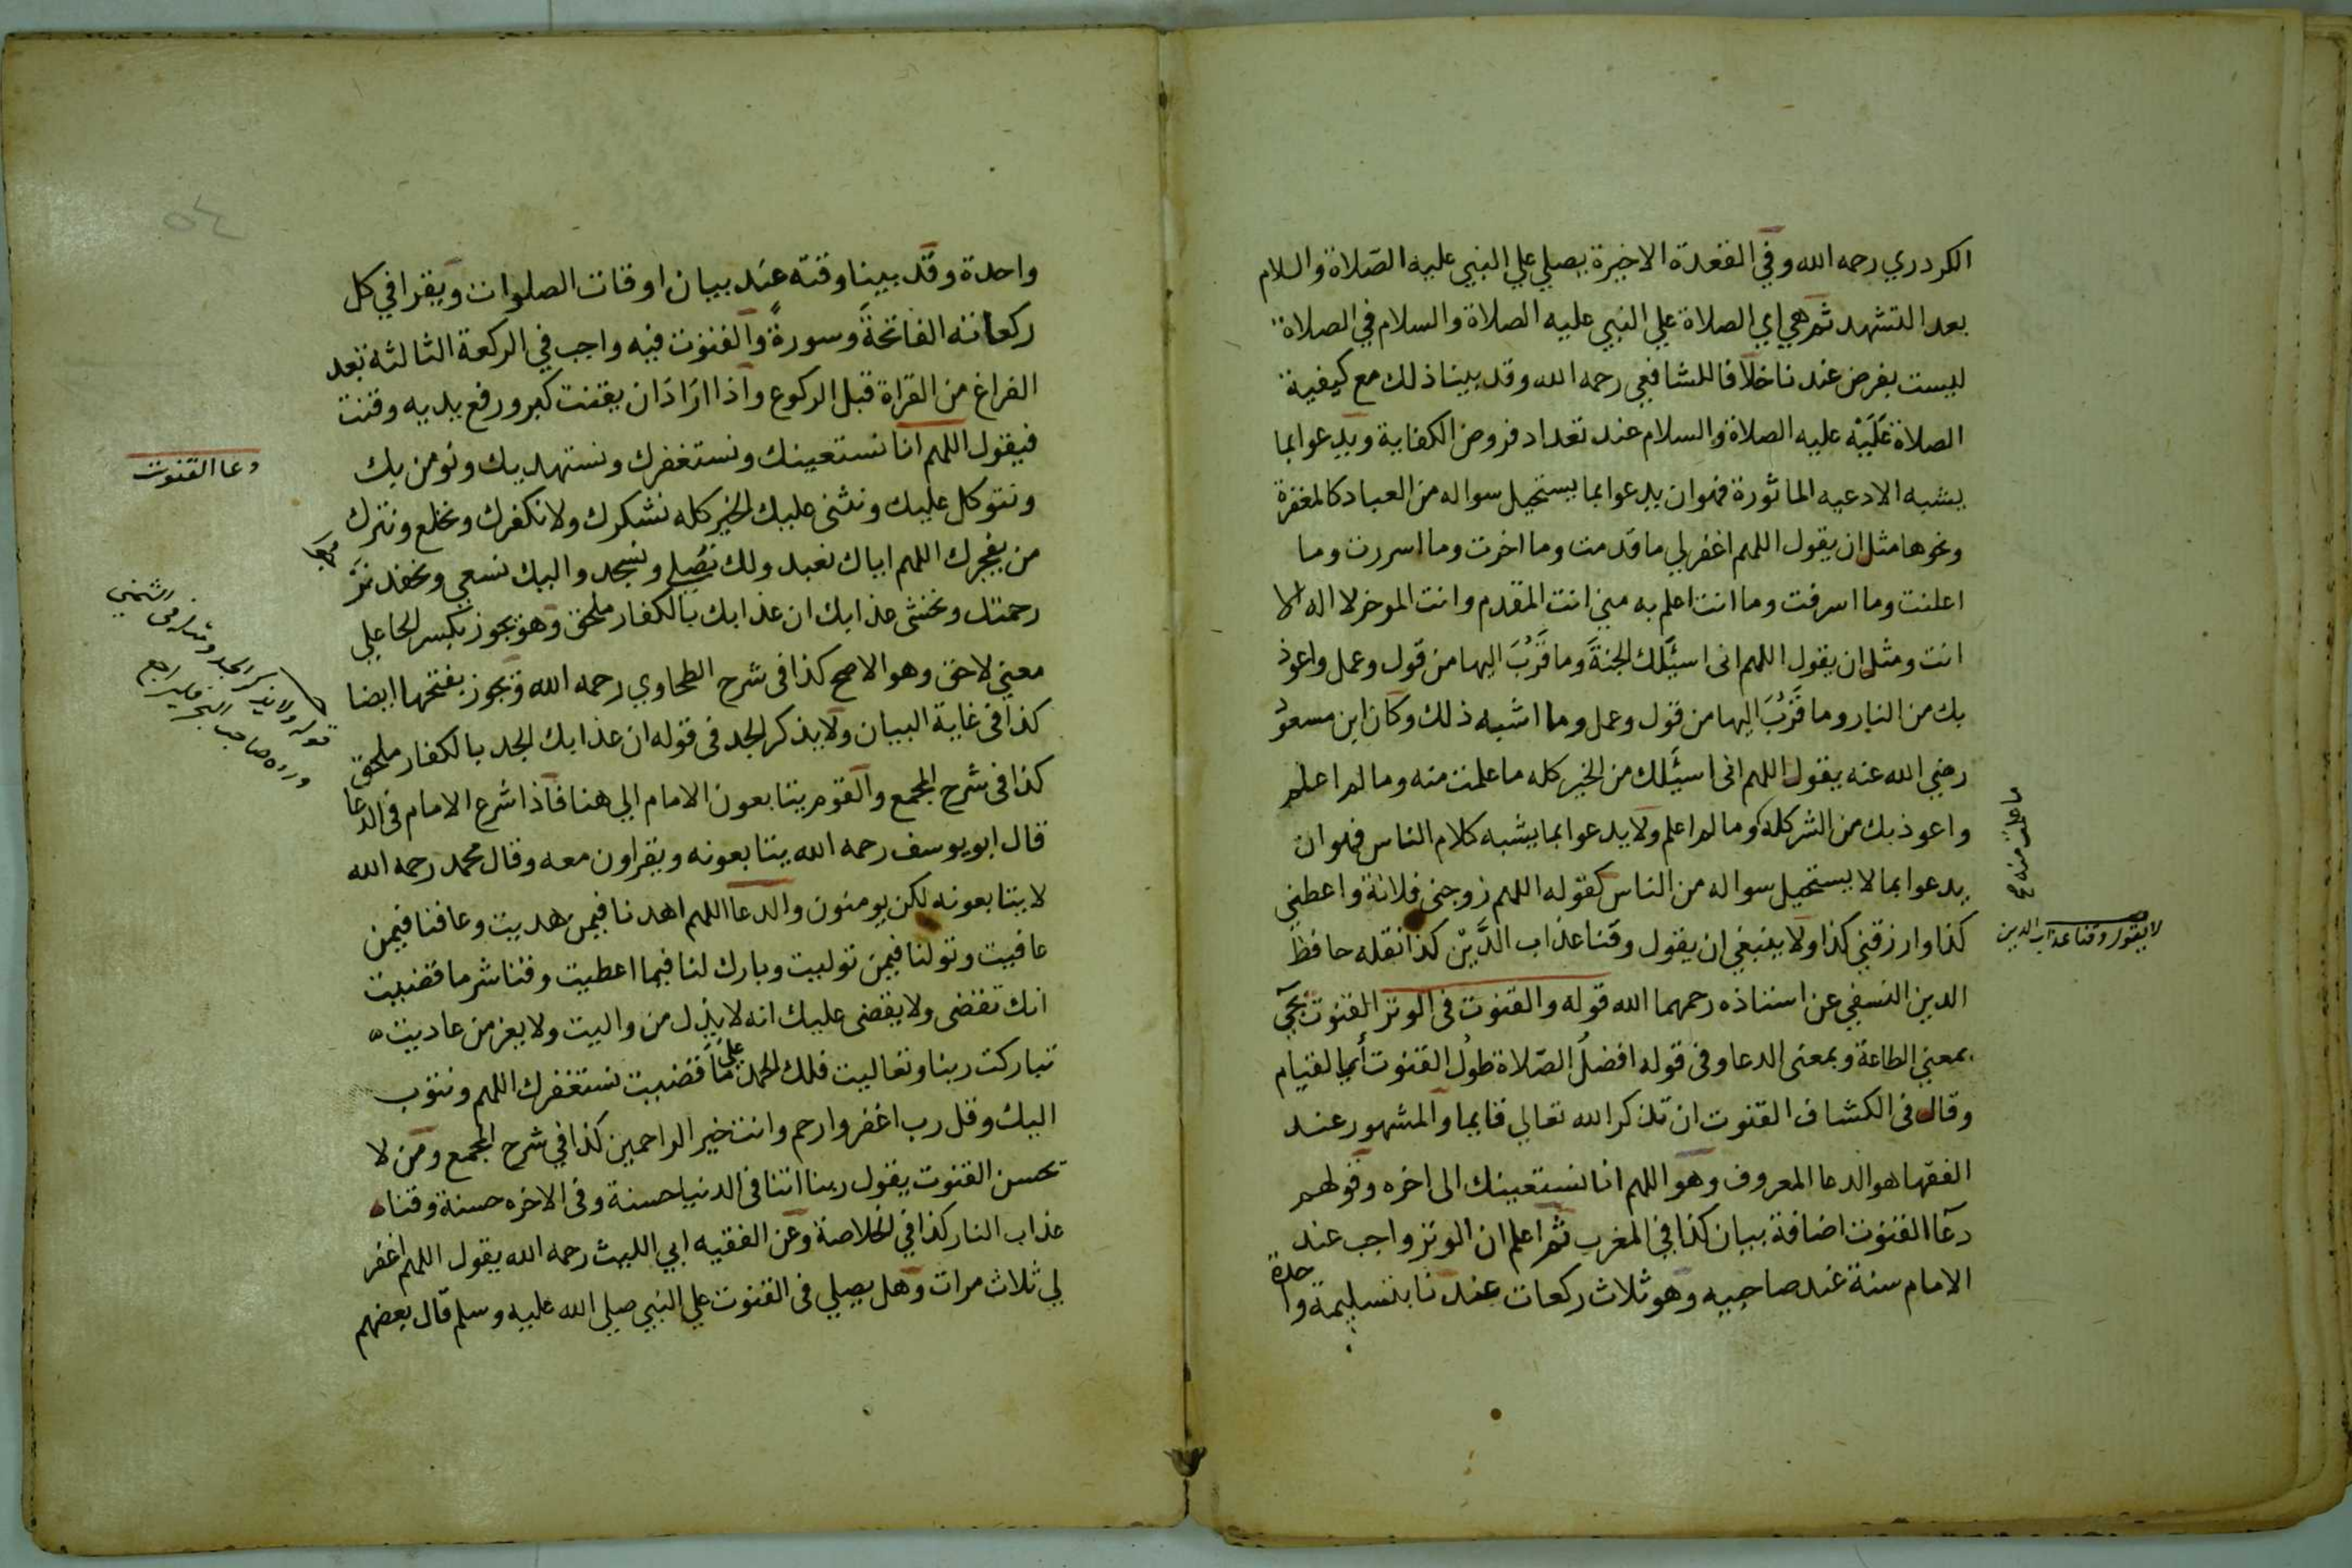 الكردري رحمه الله وفي القعدة الاخيرة يصلي علي النبي عليه الصلاة والسلام
بعد التشهد ثم هي اي الصلاة علي النبي عليه الصلاة والسلام في الصلاة
ليست بفرض عندنا خلافا للشافعي رحمه الله وقد بينا ذلك مع كيفية
الصلاة عَلَيْه عليه الصلاة والسلام عند تعداد فروض الكفاية ويدعوا بما
يشبه الادعيه الماثورة فهوان يدعوا بما يستحيل سواله من العباد كالمغفرة
ونحوها مثل ان يقول اللهم اغفر لي ما قدمت وما اخرت وما اسررت وما
اعلنت وما اسرفت وما انت اعلم به مني انت المقدم وانت الموخر لا اله الا
انت ومثل ان يقول اللهم انى اسئَلك الجنةَ وما قَرُبَ اليها من قول وعمل واعوذ
بك من النار وما قَرُبَ اليها من قول وعمل وما اشبه ذلك وكان ابن مسعود
رضي الله عنه يقول اللهم انى اسئَلك من الخير كله ما علمت منه وما لم اعلم
واعوذ بك من الشر كله وما لم اعلم ولا يدعوا بما يشبه كلام الناس فهوان
ما علمت منه
يدعوا بما لا يستحيل سواله من الناس كقوله اللهم زوجنى فلانة واعطني
كذا وارزقني كذا ولا ينبغي ان يقول وقنا عذاب الدَّيْن كذا نقله حافظ
لا يقول وقنا عذاب الدين
الدين النسفي عن استاذه رحمهما الله قوله والقنوت فى الوتر القنوت يجي
بمعني الطاعة وبمعنى الدعا وفى قوله افضلُ الصّلاة طولُ القنوت أي القيام
وقال فى الكشاف القنوت ان تذكر الله تعالي قايما والمشهور عند
الفقها هو الدعا المعروف وهو اللهم انا نستعينك الى اخره وقولهم
دعآ القنوت اضافة بيان كذا في المغرب ثم اعلم ان الوتر واجب عند
الامام سنة عند صاحبيه وهو ثلاث ركعات عندنا بتسليمة واحدة
واحدة وقد بينا وقته عند بيان اوقات الصلوات ويقرا في كل
ركعاته الفاتحةَ وسورةً والقنوت فيه واجب في الركعة الثالثه بعد
الفراغ من القراة قبل الركوع واذا ارَادَ ان يقنت كبر ورفع يديه وقنت
فيقول اللهم انا نستعينك ونستغفرك ونستهديك ونومن بك
دعا القنوت
ونتوكل عليك ونثنى عليك الخير كله نشكرك ولا نكفرك ونخلع ونترك
من يفجرك اللهم اياك نعبد ولك نصلي ونسجد واليك نسعى ونحفد نرجوا
رحمتك ونخشى عذابك ان عذابك بالكفار ملحق وهو يجوز بكسر الحا علي
معني لاحق وهو الاصح كذا فى شرح الطحاوي رحمه الله ويجوز بفتحها ايضا
كذا فى غاية البيان ولا يذكر الجد فى قوله ان عذابك الجد بالكفار ملحق
قوله ولا يذكر الجد
كذا فى شرح المجمع والقوم يتابعون الامام الي هنا فاذا شرع الامام فى الدعا
قال ابو يوسف رحمه الله يتابعونه ويقراون معه وقال محمد رحمه الله
لا يتابعونه لكن يومنون والدعا اللهم اهدنا فيمن هديت وعافنا فيمن
عافيت وتولنا فيمن توليت وبارك لنا فيما اعطيت وقنا شر ما قضيت
انك تقضى ولا يقضى عليك انه لا يذل من واليت ولا يعز من عاديت
تباركت ربنا وتعاليت فلك الحمد على ما قضيت نستغفرك اللهم ونتوب
اليك وقل رب اغفر وارحم وانت خير الراحمين كذا في شرح المجمع ومن لا
يحسن القنوت يقول ربنا اتنا فى الدنيا حسنة وفى الاخره حسنة وقنا
عذاب النار كذا في الخلاصة وعن الفقيه ابي الليث رحمه الله يقول اللهم اغفر
لي ثلاث مرات وهل يصلي فى القنوت علي النبي صلي الله عليه وسلم قال بعضهم